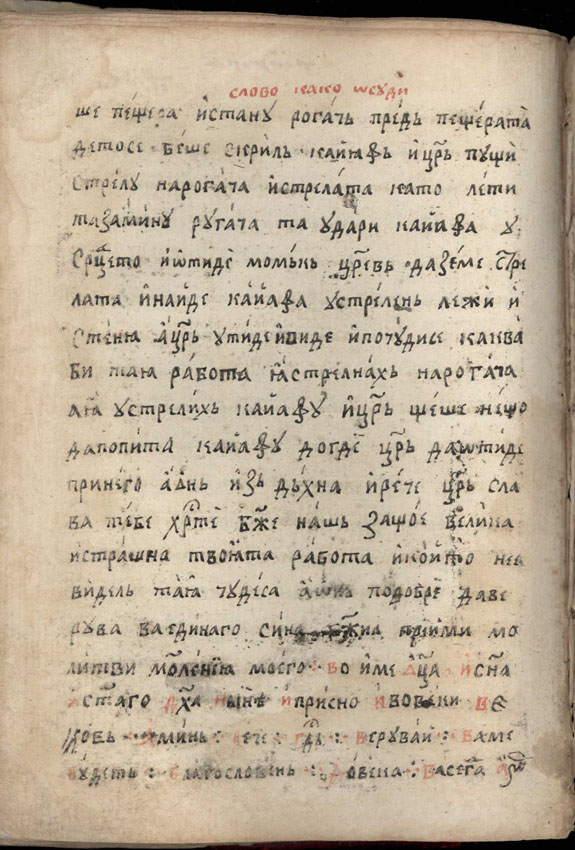 слово како ѡсуди
ше пещера истану рогачь предь пещерата
детосе беше скриль каиафь ицрь пущи
стрелу нарогача истрелата като лети
тазамину ругача та удари каиафа у
срцето иѡтиде момькь цревь даземе стре
лата инаиде каиафа устрелень лежи и
стеню ацрь утидеивиде ипочудисе каква
би таꙗ работа ꙗстрелꙗхь нарогача
аꙗ устрелихь каиафу ицрь щеше нещо
дапопита каиафу догде црь даѡтиде
принего аѡнь изь дьхна ирече црь сла
ва тебе хрте бже нашь защое велика
истрашна твоꙗта работа икоито нее
видель таꙗ чудеса аѡнь подобре даве
рува ваединаго сина бжиа приими мо
литви моленїꙗ моего во име ѡца исна
истаго дха ныне иприсно ивовеки ве
ковь аминь веруваи ваме
будеть благословень довека васега